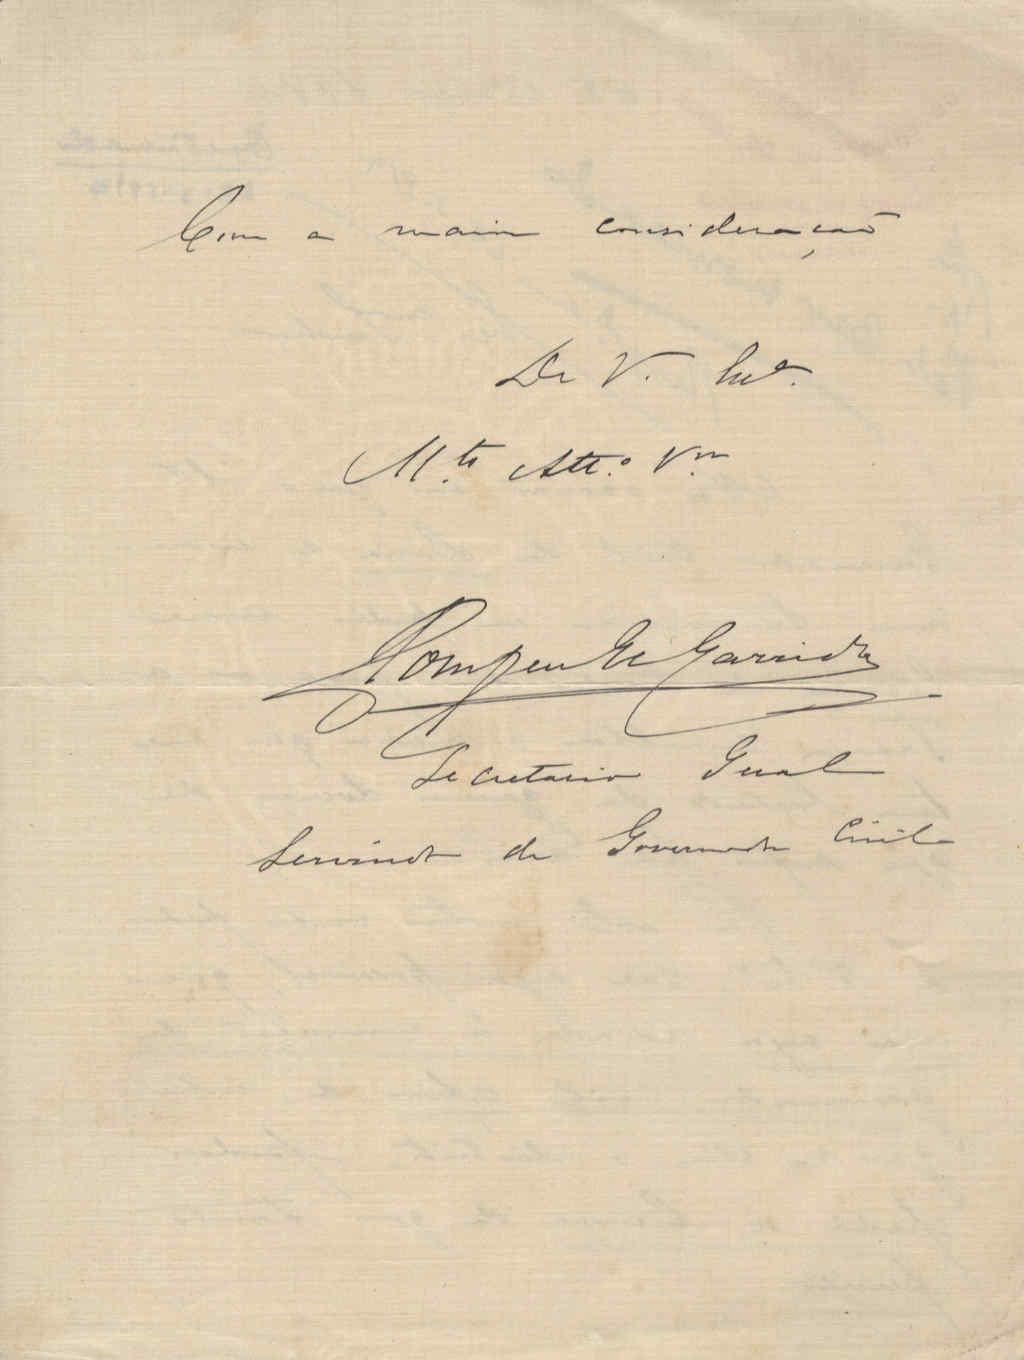 Com a maior consideração
De V. Ex.ª
M.to Att.º V.or
Pompeu de Garrido
Secretario Geral
Servindo de Governador Civil